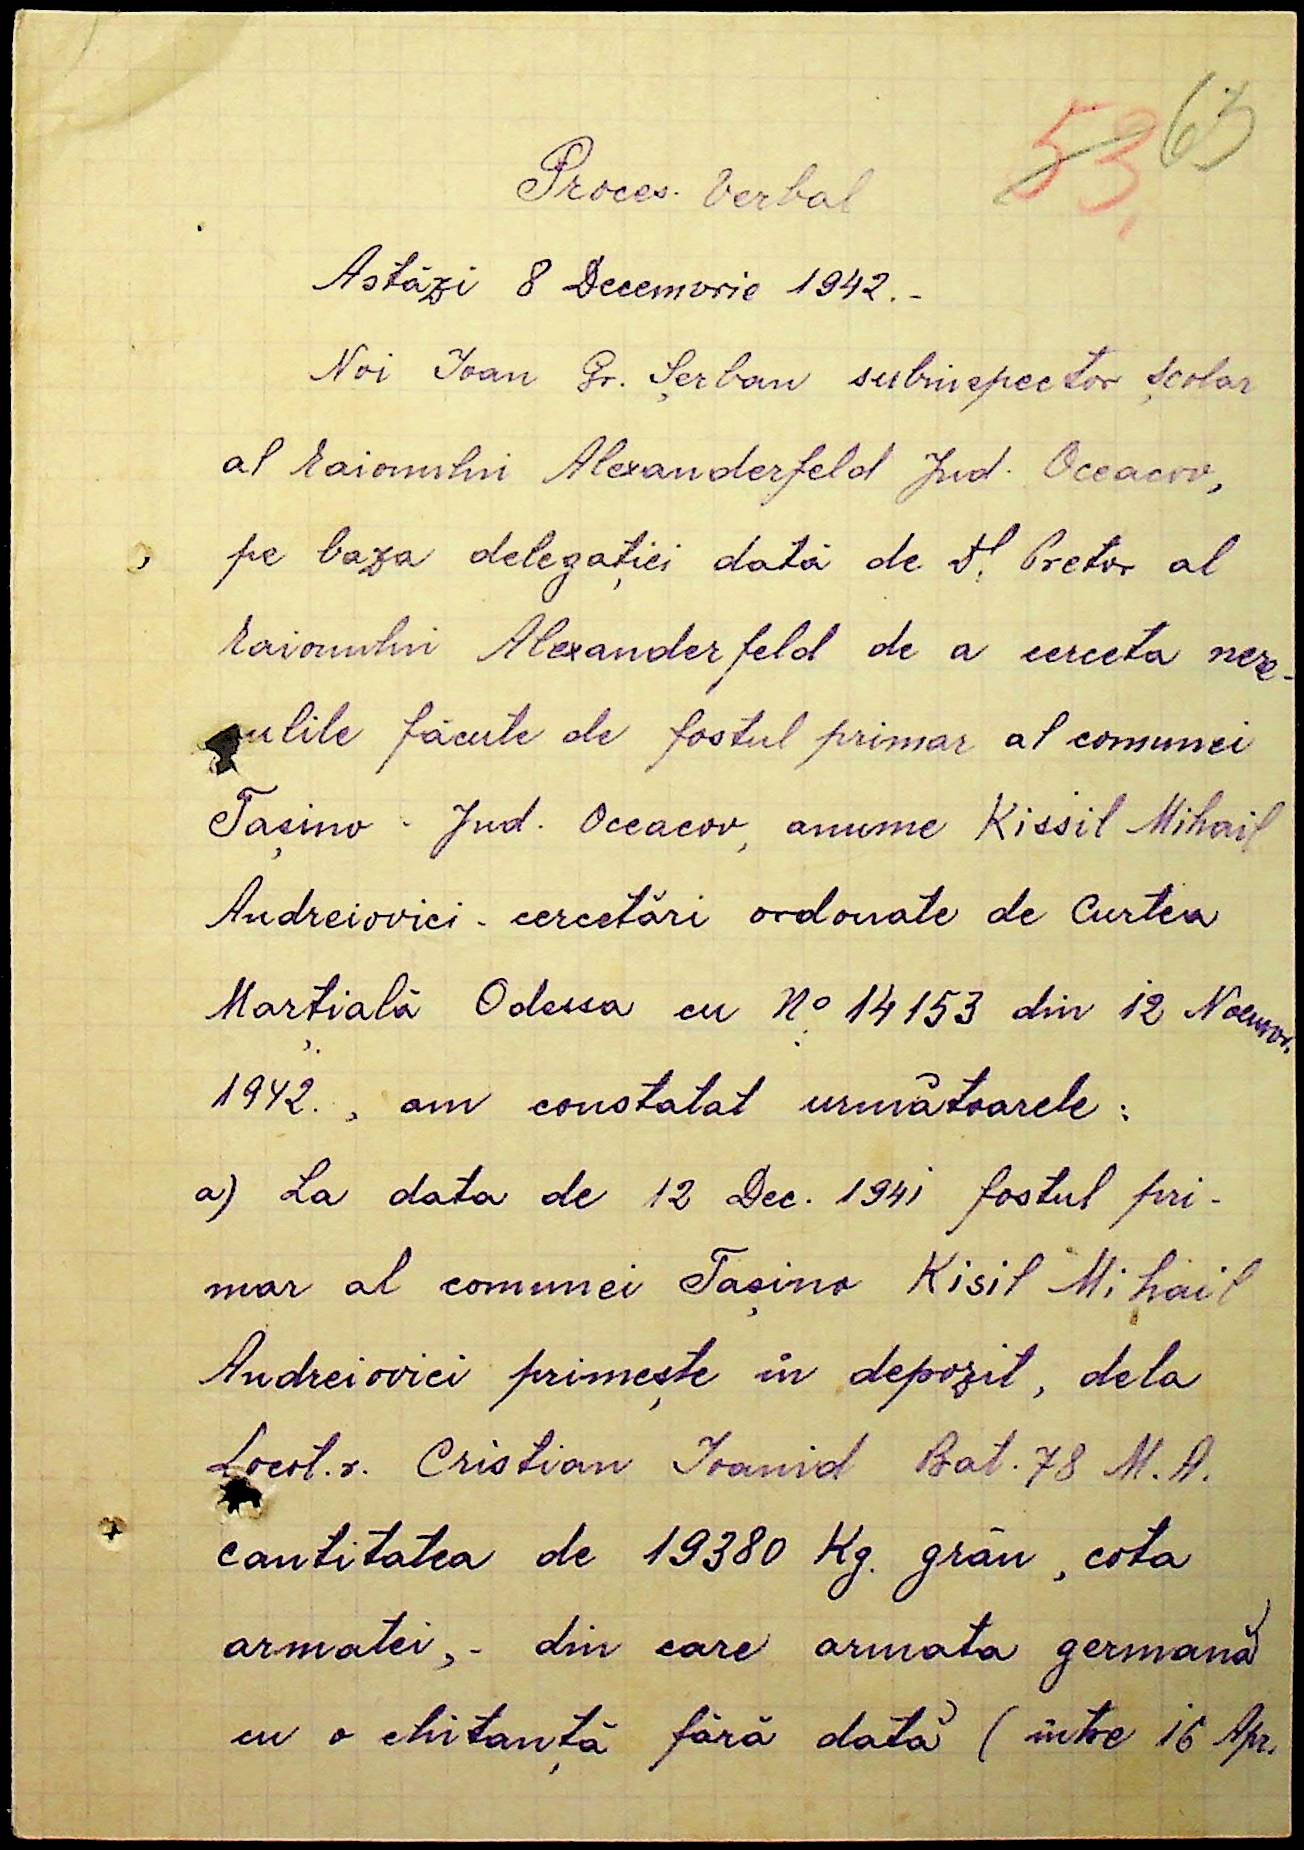 53, 63
Proces. Verbal
Astăzi 8 Decemvrie 1942.-
Noi Ioan Gr. Șerban subinspector școlar
al raionului Alexanderfeld Jud. Oceacov,
pe baza delegației dată de Dl. Pretor al
raionului Alexanderfeld de a cerceta nere-
ulile făcute de fostul primar al comunei
Tașino - Jud. Oceacov, anume Kissil Mihail
Andreiovici - cercetări ordonate de Curtea
Marțială Odessa cu No 14153 din 12 Noemvr.
1942., am constatat următoarele:
a) La data de 12 Dec. 1941 fostul pri-
mar al comunei Tașino Kisil Mihail
Andreiovici primește în depozit, dela
Locot. r. Cristian Ioanid Bat. 78 M. A.
cantitatea de 19380 Kg. grâu, cota
armatei, - din care armata germană
cu o chitanță fără dată (între 16 Apr.